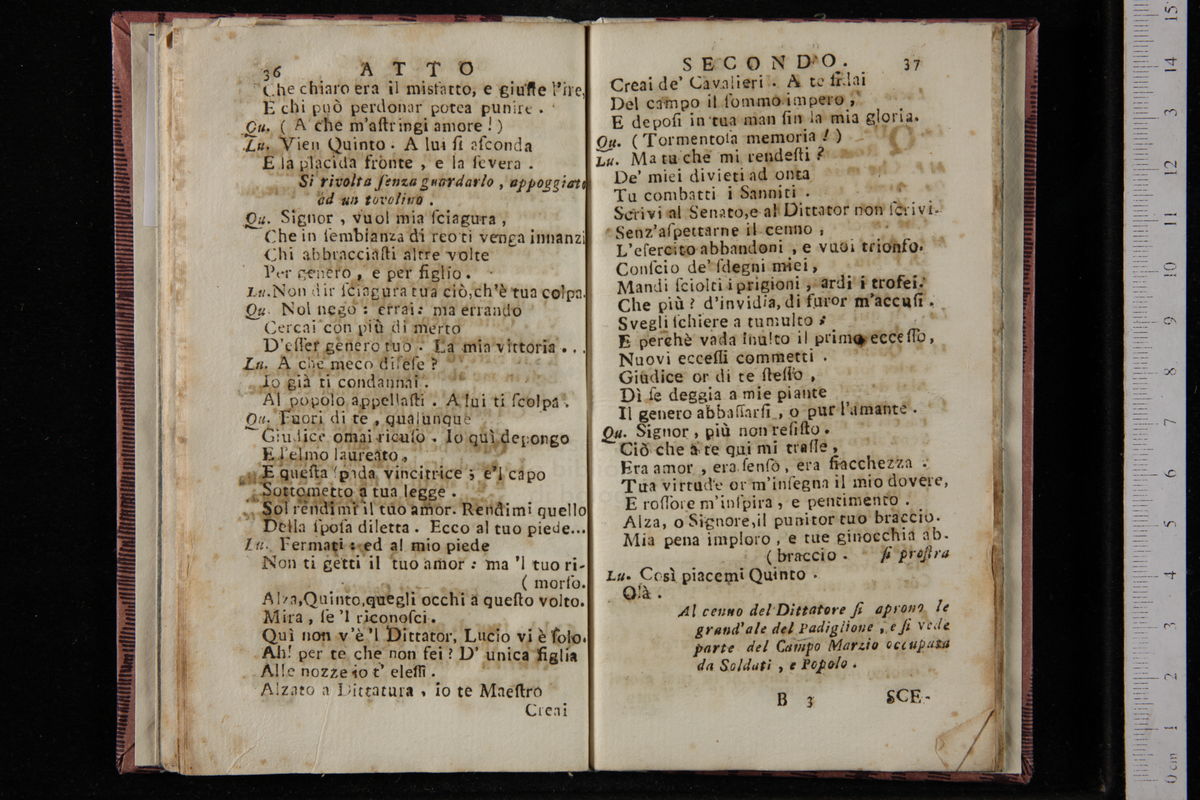 36 ATTO
Che chiaro era il misfatto, e giuste l'ire,
E chi può perdonar potea punire.
Qu. ( A che m'astringi amore ! )
Lu. Vien Quinto. A lui si asconda
E la placida fronte, e la severa.
Si rivolta senza guardarlo, appoggiato
ad un tovolino.
Qu. Signor, vuol mia sciagura,
Che in sembianza di reo ti venga innanzi
Chi abbracciasti altre volte
Per genero, e per figlio.
Lu. Non dir sciagura tua ciò, ch'è tua colpa.
Qu. Nol nego: errai: ma errando
Cercai con più di merto
D'esser genero tuo. La mia vittoria...
Lu. A che meco difese?
Io già ti condannai.
Al popolo appellasti. A lui ti scolpa.
Qu. Fuori di te, qualunque
Giudice omai ricuso. Io quì depongo
E l'elmo laureato,
E questa spada vincitrice; e'l capo
Sottometto a tua legge.
Sol rendimi il tuo amor. Rendimi quello
Della sposa diletta. Ecco al tuo piede...
Lu. Fermati: ed al mio piede
Non ti getti il tuo amor: ma 'l tuo ri-
( morso.
Alza, Quinto, quegli occhi a questo volto.
Mira, se 'l riconosci.
Quì non v'è 'l Dittator, Lucio vi è solo.
Ah! per te che non fei? D' unica figlia
Alle nozze io t' elessi.
Alzato a Dittatura, io te Maestro
Creai
SECONDO. 37
Creai de' Cavalieri. A te fidai
Del campo il sommo impero,
E deposi in tua man fin la mia gloria.
Qu. ( Tormentosa memoria ! )
Lu. Ma tu che mi rendesti?
De' miei divieti ad onta
Tu combatti i Sanniti.
Scrivi al Senato, e al Dittator non scrivi.
Senz'aspettarne il cenno,
L'esercito abbandoni, e vuoi trionfo.
Conscio de' sdegni miei,
Mandi sciolti i prigioni, ardi i trofei.
Che più? d'invidia, di furor m'accusi.
Svegli schiere a tumulto;
E perchè vada inulto il primo eccesso,
Nuovi eccessi commetti.
Giudice or di te stesso,
Dì se deggia a mie piante
Il genero abbassarsi, o pur l'amante.
Qu. Signor, più non resisto.
Ciò che a te qui mi trasse,
Era amor, era senso, era fiacchezza:
Tua virtude or m'insegna il mio dovere,
E rossore m'inspira, e pentimento.
Alza, o Signore, il punitor tuo braccio.
Mia pena imploro, e tue ginocchia ab-
( braccio. si prostra
Lu. Così piacemi Quinto.
Olà.
Al cenno del Dittatore si aprono le
grand'ale del Padiglione, e si vede
parte del Campo Marzio occupata
da Soldati, e Popolo.
B 3 SCE-
15
14
13
12
11
10
9
8
7
6
5
4
3
2
1
0 cm